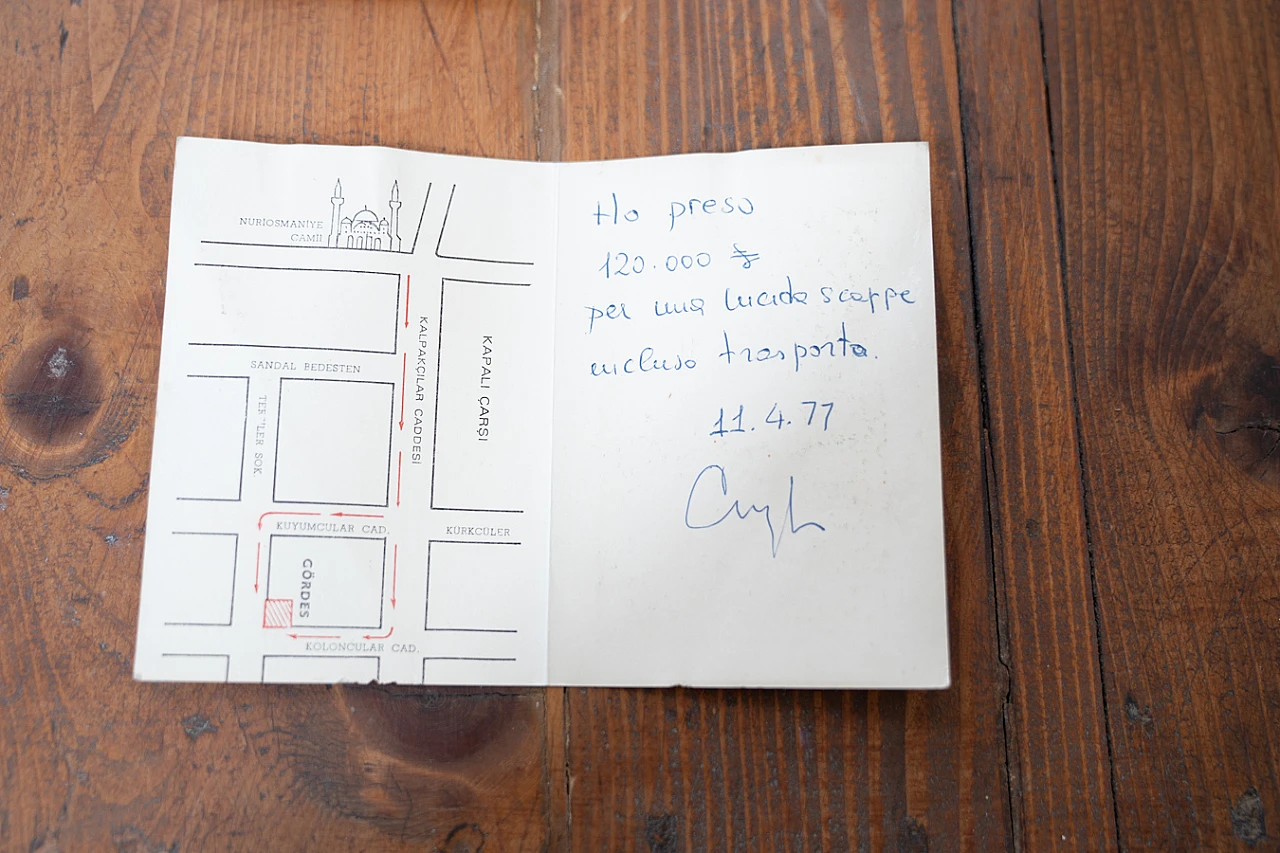 NURİOSMANİYE
CAMİİ
KALPAKÇILAR CADDESİ
KAPALI ÇARŞI
SANDAL BEDESTEN
SOK.
KUYUMCULAR CAD.
KÜRKCÜLER
GÖRDES
KOLONCULAR CAD.
Ho preso
120.000 ₤
per una lucida scarpe
incluso trasporto.
11.4.77